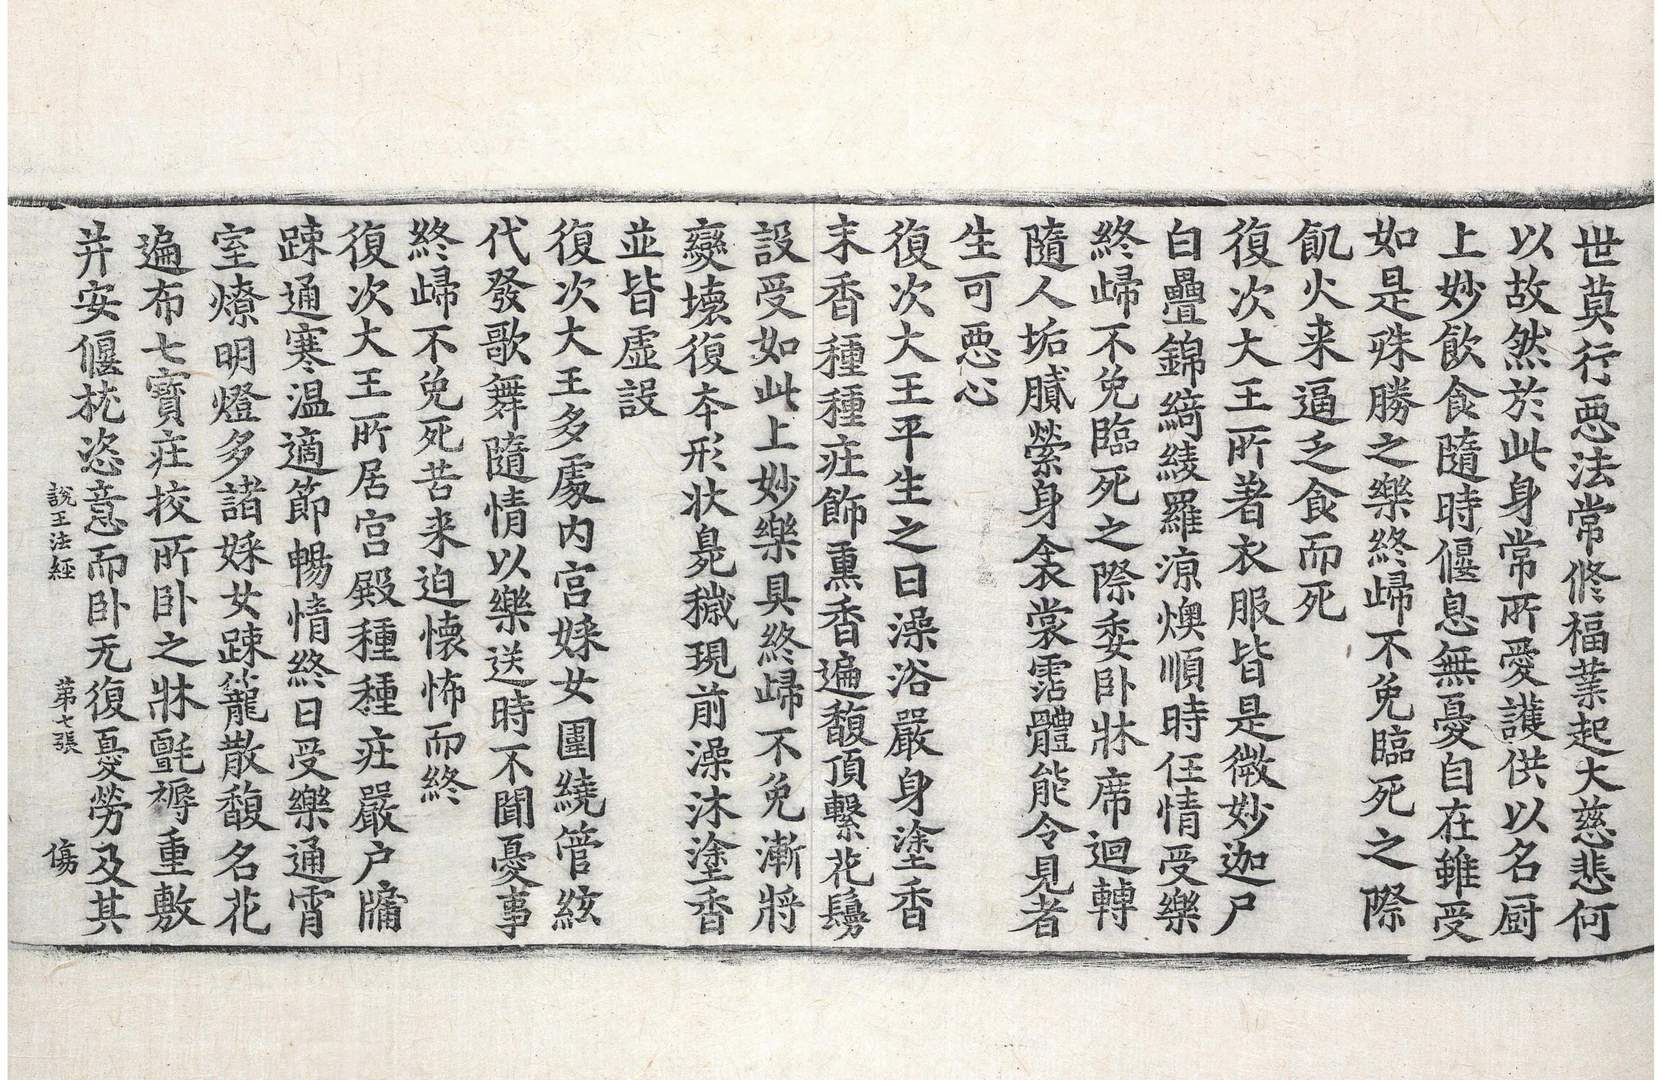 世莫行惡法常脩福業起大慈悲何
以故然於此身常所愛護供以名厨
上妙飲食隨時偃息無憂自在雖受
如是殊勝之樂終歸不免臨死之際
飢火来逼乏食而死
復次大王所著衣服皆是微妙迦尸
白疊錦綺綾羅凉燠順時任情受樂
終歸不免臨死之際委卧牀席迴轉
隨人垢膩縈身衾裳霑體能令見者
生可惡心
復次大王平生之日澡浴嚴身塗香
末香種種莊飾熏香遍馥頂繫花鬘
設受如此上妙樂具終歸不免漸將
變壞復本形状臰穢現前澡沐塗香
並皆虛設
復次大王多處内宮婇女圍繞管絃
代發歌舞隨情以樂送時不聞憂事
終歸不免死苦来迫懷怖而終
復次大王所居宫殿種種莊嚴户牖
踈通寒温適節暢情終日受樂通霄
室燎明燈多諸婇女踈籠散馥名花
遍布七寶莊挍所卧之牀氈褥重敷
并安偃枕恣意而卧无復憂勞及其
說王法經 第七張 傷